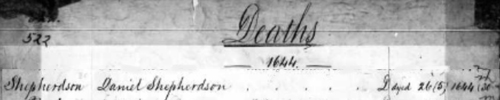 522
Deaths
1644.
Shepherdson Daniel Shepherdson . . . . . D dyed 26 (5) 1644